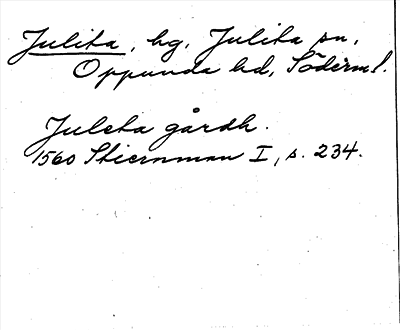 Julita, hg, Julita sn,
Oppunda hd, Söderml.
Juleta gårdh.
1560 Stiernman I, s. 234.